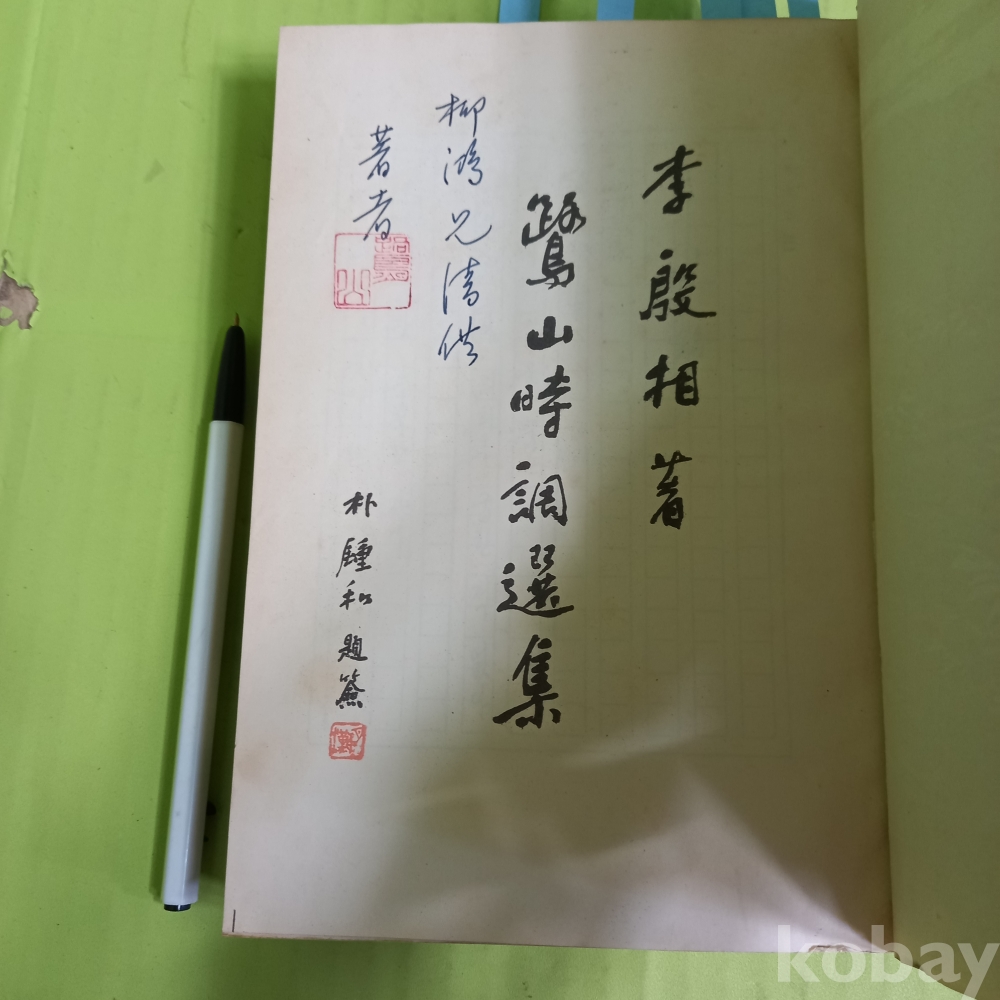 李殷相 著
鷺山時調選集
柳鴻兄 清供
著者
鷺山
朴鍾和 題簽
kobay